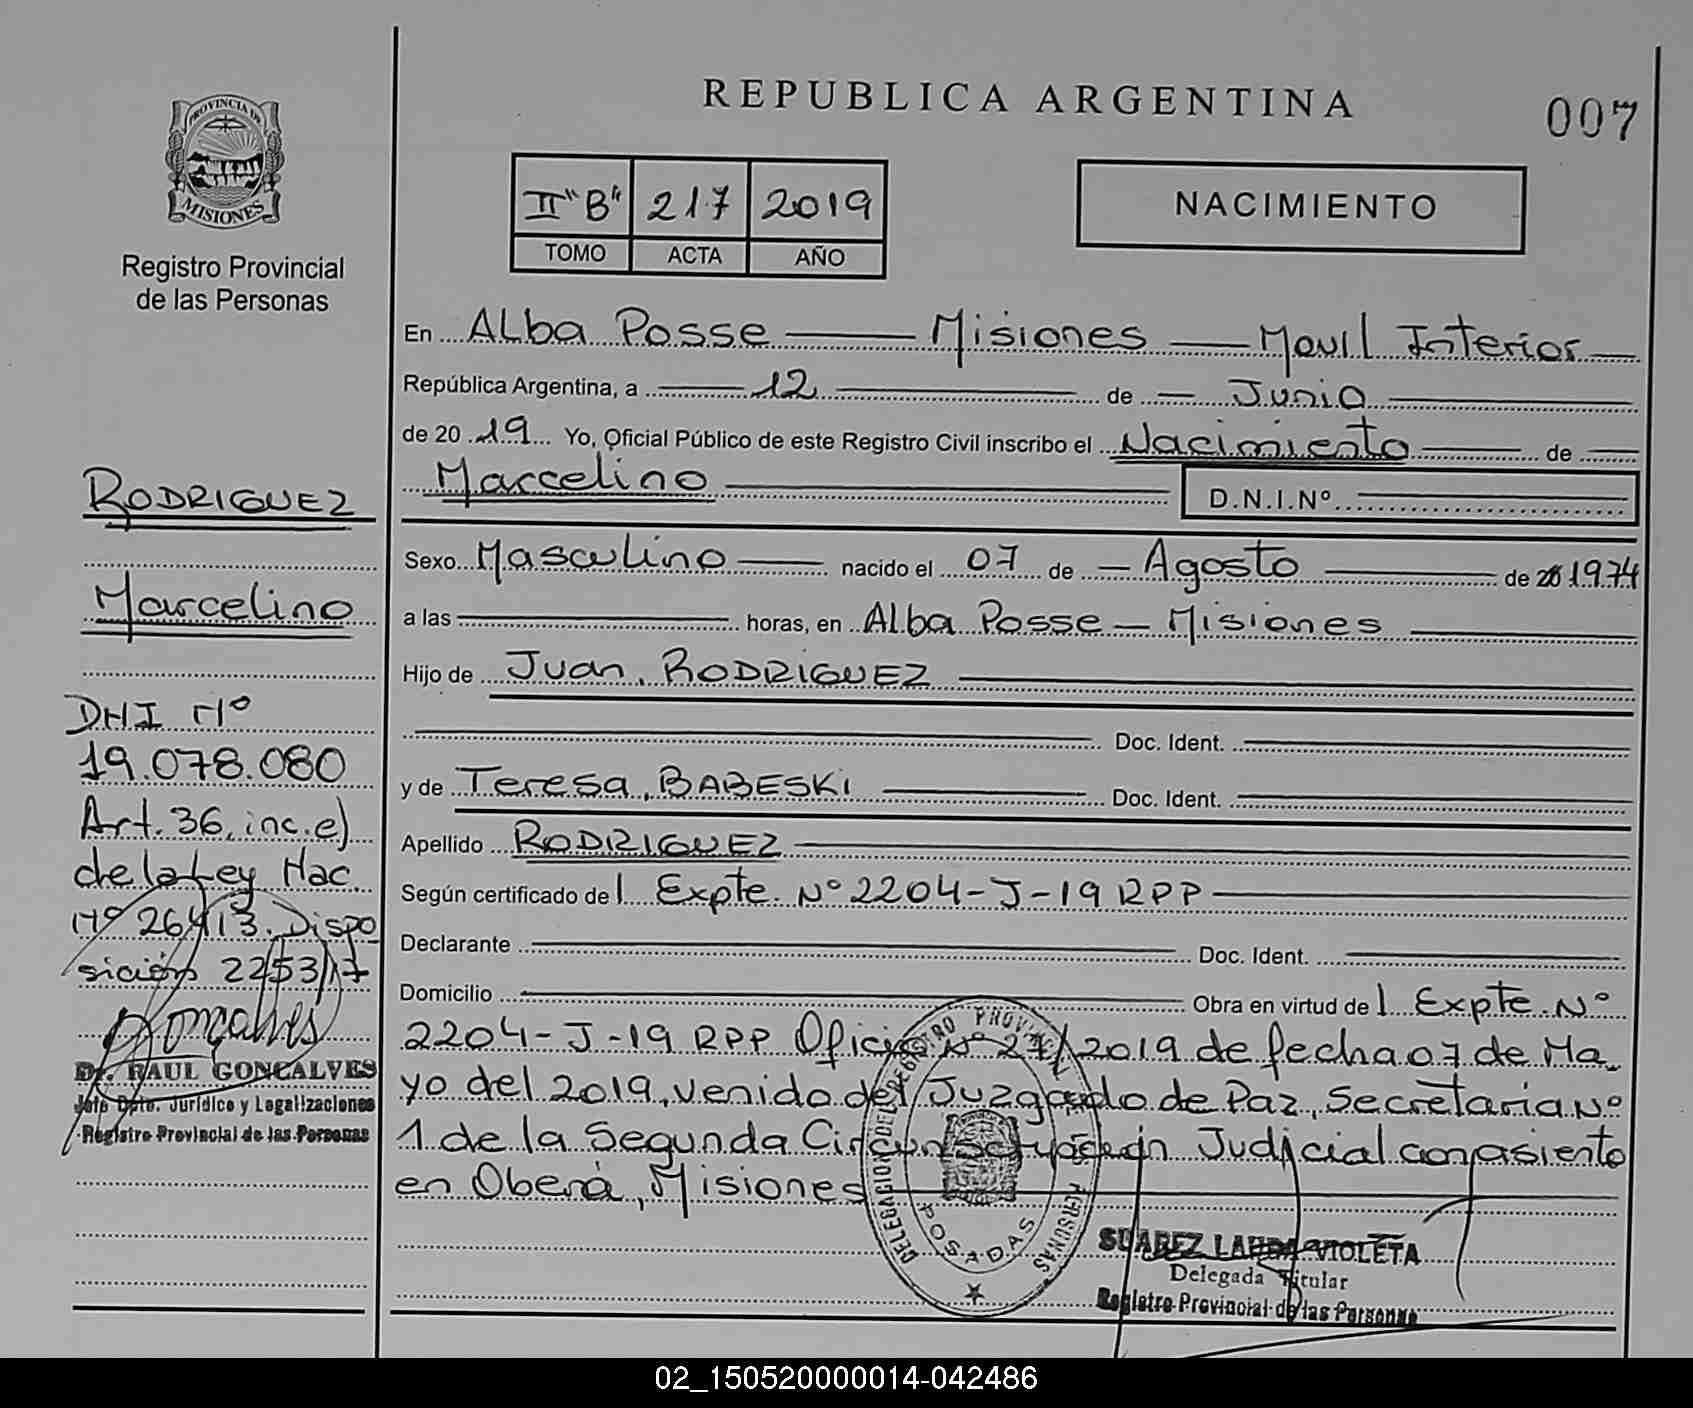 REPUBLICA ARGENTINA
007
PROVINCIA DE
MISIONES
Registro Provincial
de las Personas
II "B" 217 2019
TOMO ACTA AÑO
NACIMIENTO
En Alba Posse Misiones Movil Interior
República Argentina, a 12 de Junio
de 2019 Yo, Oficial Público de este Registro Civil inscribo el Nacimiento de
Marcelino D.N.I.Nº
Sexo Masculino nacido el 07 de Agosto de 1974
a las horas, en Alba Posse Misiones
Hijo de Juan, RODRIGUEZ
Doc. Ident.
y de Teresa, BABESKI Doc. Ident.
Apellido RODRIGUEZ
Según certificado de Expte. Nº 2204-J-19 RPP
Declarante Doc. Ident.
Domicilio Obra en virtud de Expte. Nº
2204-J-19 RPP Oficio Nº 27/2019 de fecha 07 de Ma
yo del 2019, venido del Juzgado de Paz, Secretaria Nº
1 de la Segunda Circunscripción Judicial con asiento
en Oberá, Misiones
RODRIGUEZ
Marcelino
DNI Nº
19.078.080
Art. 36, inc. e)
de la Ley Nac.
Nº 26413. Dispo
sición 2253/17
Gonçalves
Dr. RAUL GONCALVES
Jefe Dpto. Jurídico y Legalizaciones
Registro Provincial de las Personas
DELEGACION DEL REGISTRO PROVINCIAL PERSONAS
POSADAS
SUAREZ LAURA VIOLETA
Delegada Titular
Registro Provincial de las Personas
02_150520000014-042486